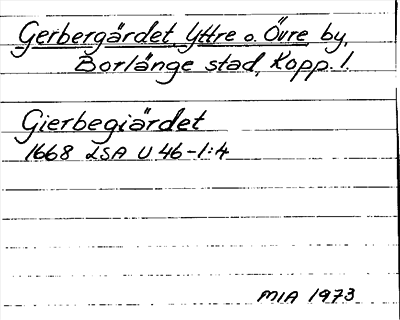 Gerbergärdet Yttre o. Övre by,
Borlänge stad, Kopp. l.
Gierbegiärdet
1668 LSA U 46-1:4
MIA 1973